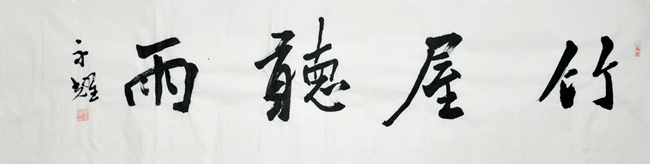 竹屋聽雨
永耀